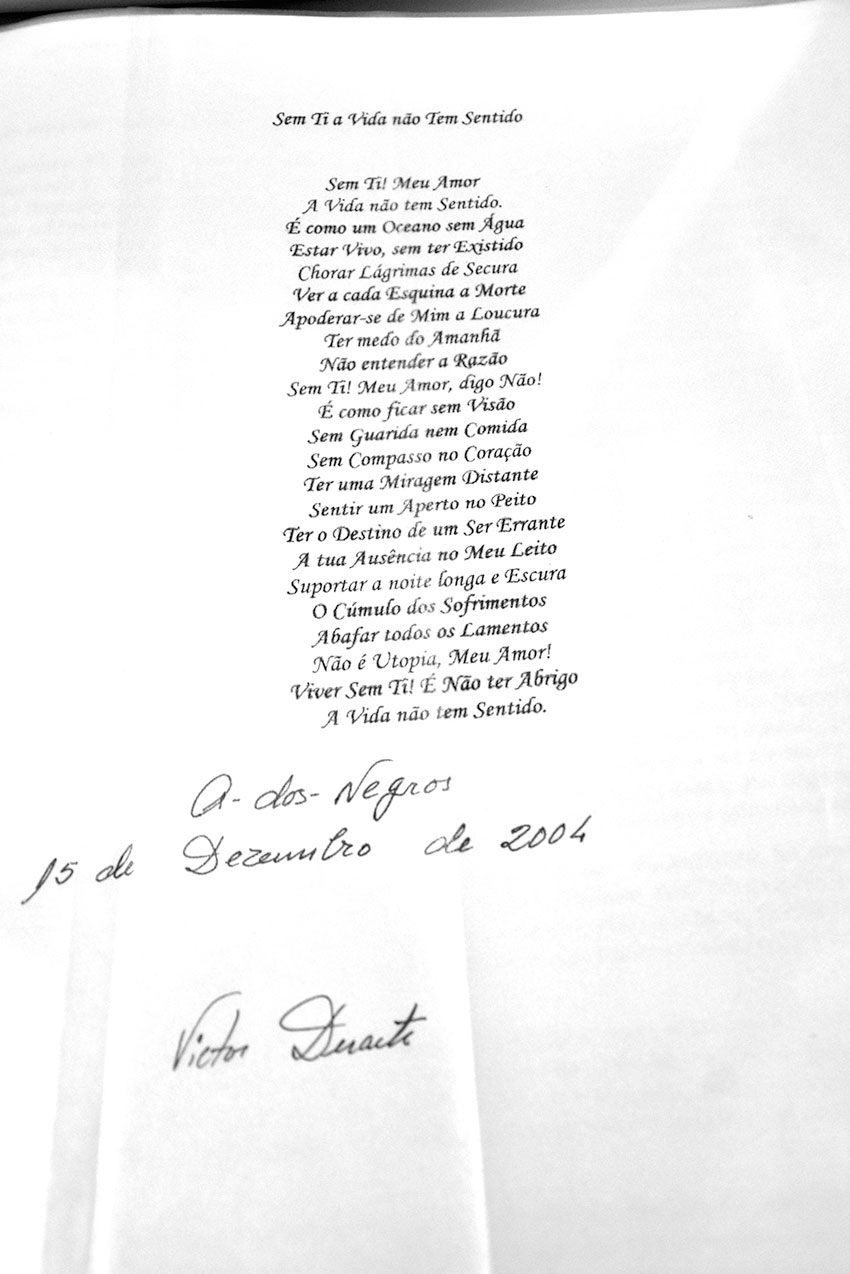 Sem Ti a Vida não Tem Sentido
Sem Ti! Meu Amor
A Vida não tem Sentido.
É como um Oceano sem Água
Estar Vivo, sem ter Existido
Chorar Lágrimas de Secura
Ver a cada Esquina a Morte
Apoderar-se de Mim a Loucura
Ter medo do Amanhã
Não entender a Razão
Sem Ti! Meu Amor, digo Não!
É como ficar sem Visão
Sem Guarida nem Comida
Sem Compasso no Coração
Ter uma Miragem Distante
Sentir um Aperto no Peito
Ter o Destino de um Ser Errante
A tua Ausência no Meu Leito
Suportar a noite longa e Escura
O Cúmulo dos Sofrimentos
Abafar todos os Lamentos
Não é Utopia, Meu Amor!
Viver Sem Ti! É Não ter Abrigo
A Vida não tem Sentido.
A-dos-Negros
15 de Dezembro de 2004
Victor Duarte